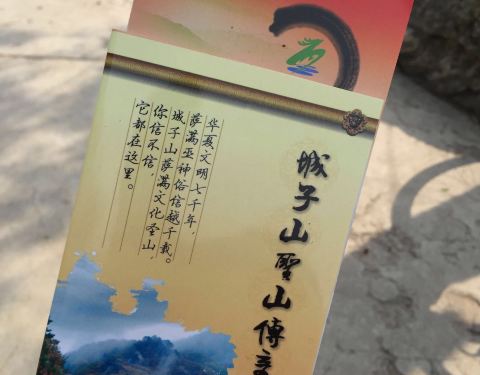 城子山聖山傳
华夏文明七千年，
萨满巫神俗信越千载。
城子山萨满文化圣山，
你信不信，
它都在这里。